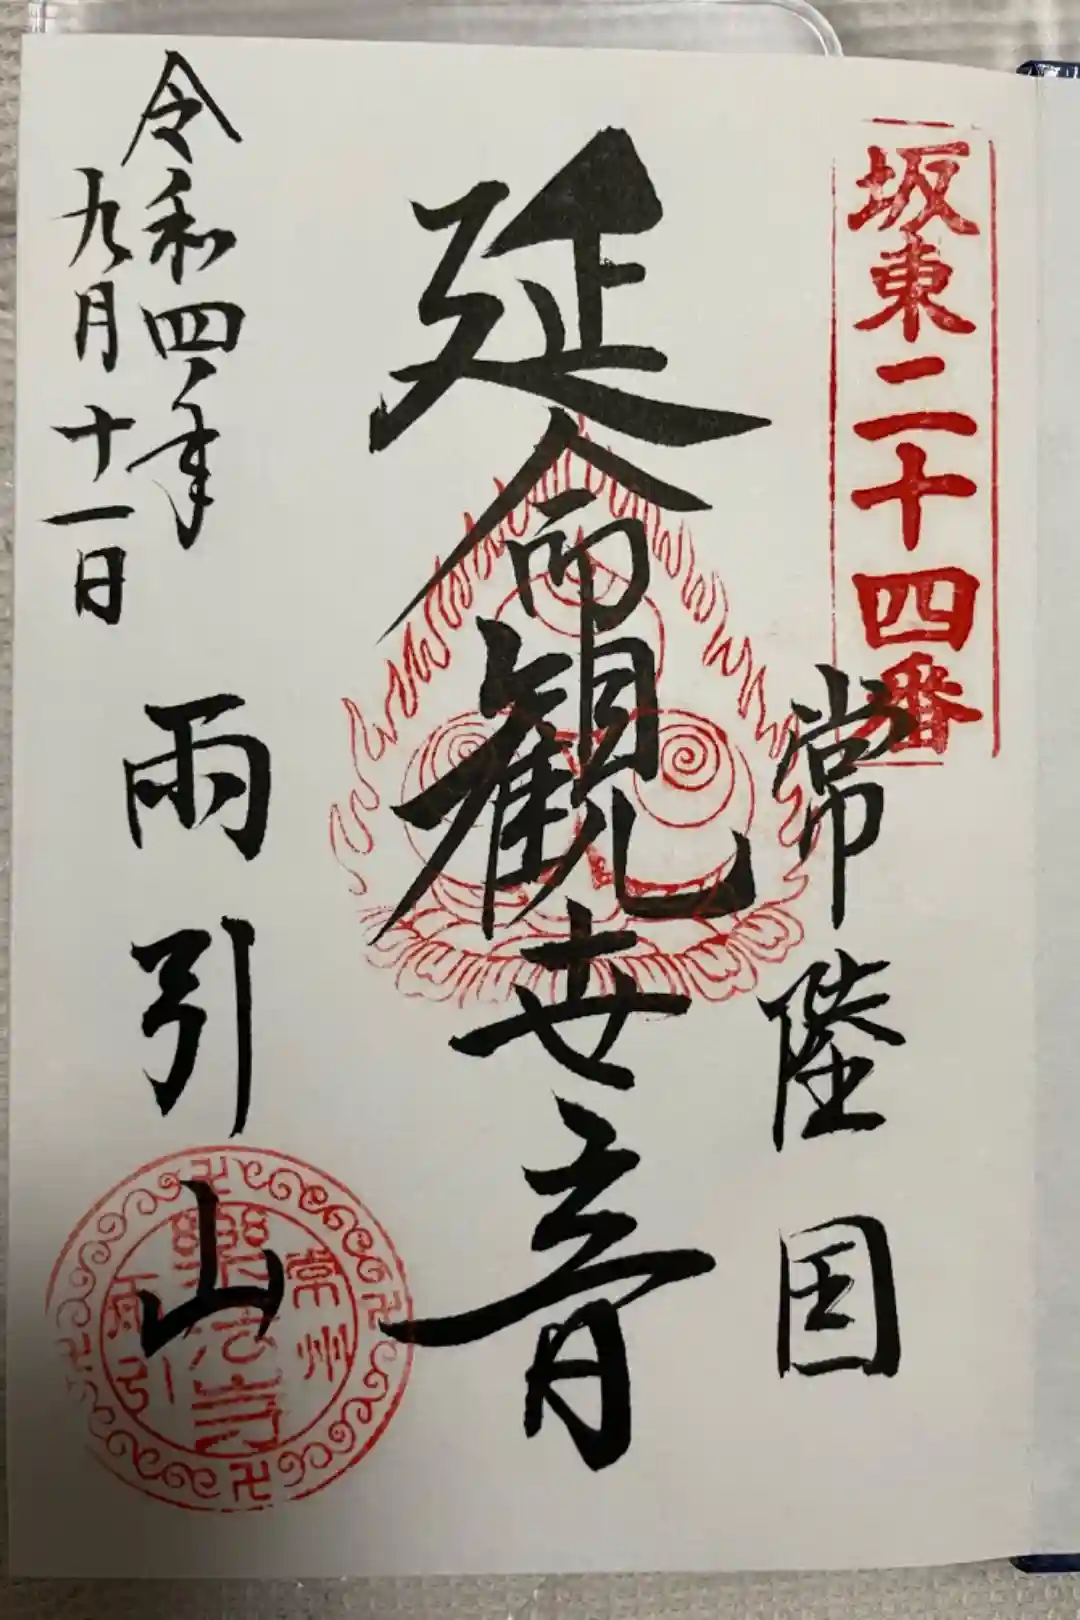 坂東二十四番
常陸国
延命観世音
雨引山
令和四年
九月十一日
常州
樂法寺
雨引山